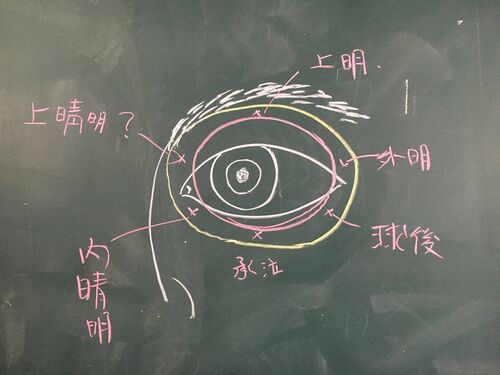 上明.
上睛明?
外明
球後
承泣
內睛明